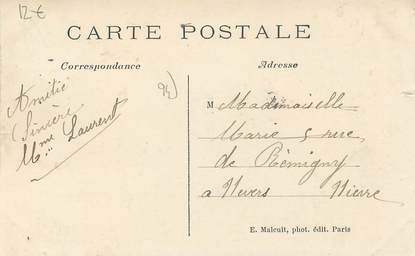 12€
CARTE POSTALE
Correspondance
Adresse
Amitié
Sincère
Mme Laurent
92
M Mademoiselle
Marie 5 rue
de Rémigny
a Nevers Nièvre
E. Malcuit, phot. édit. Paris